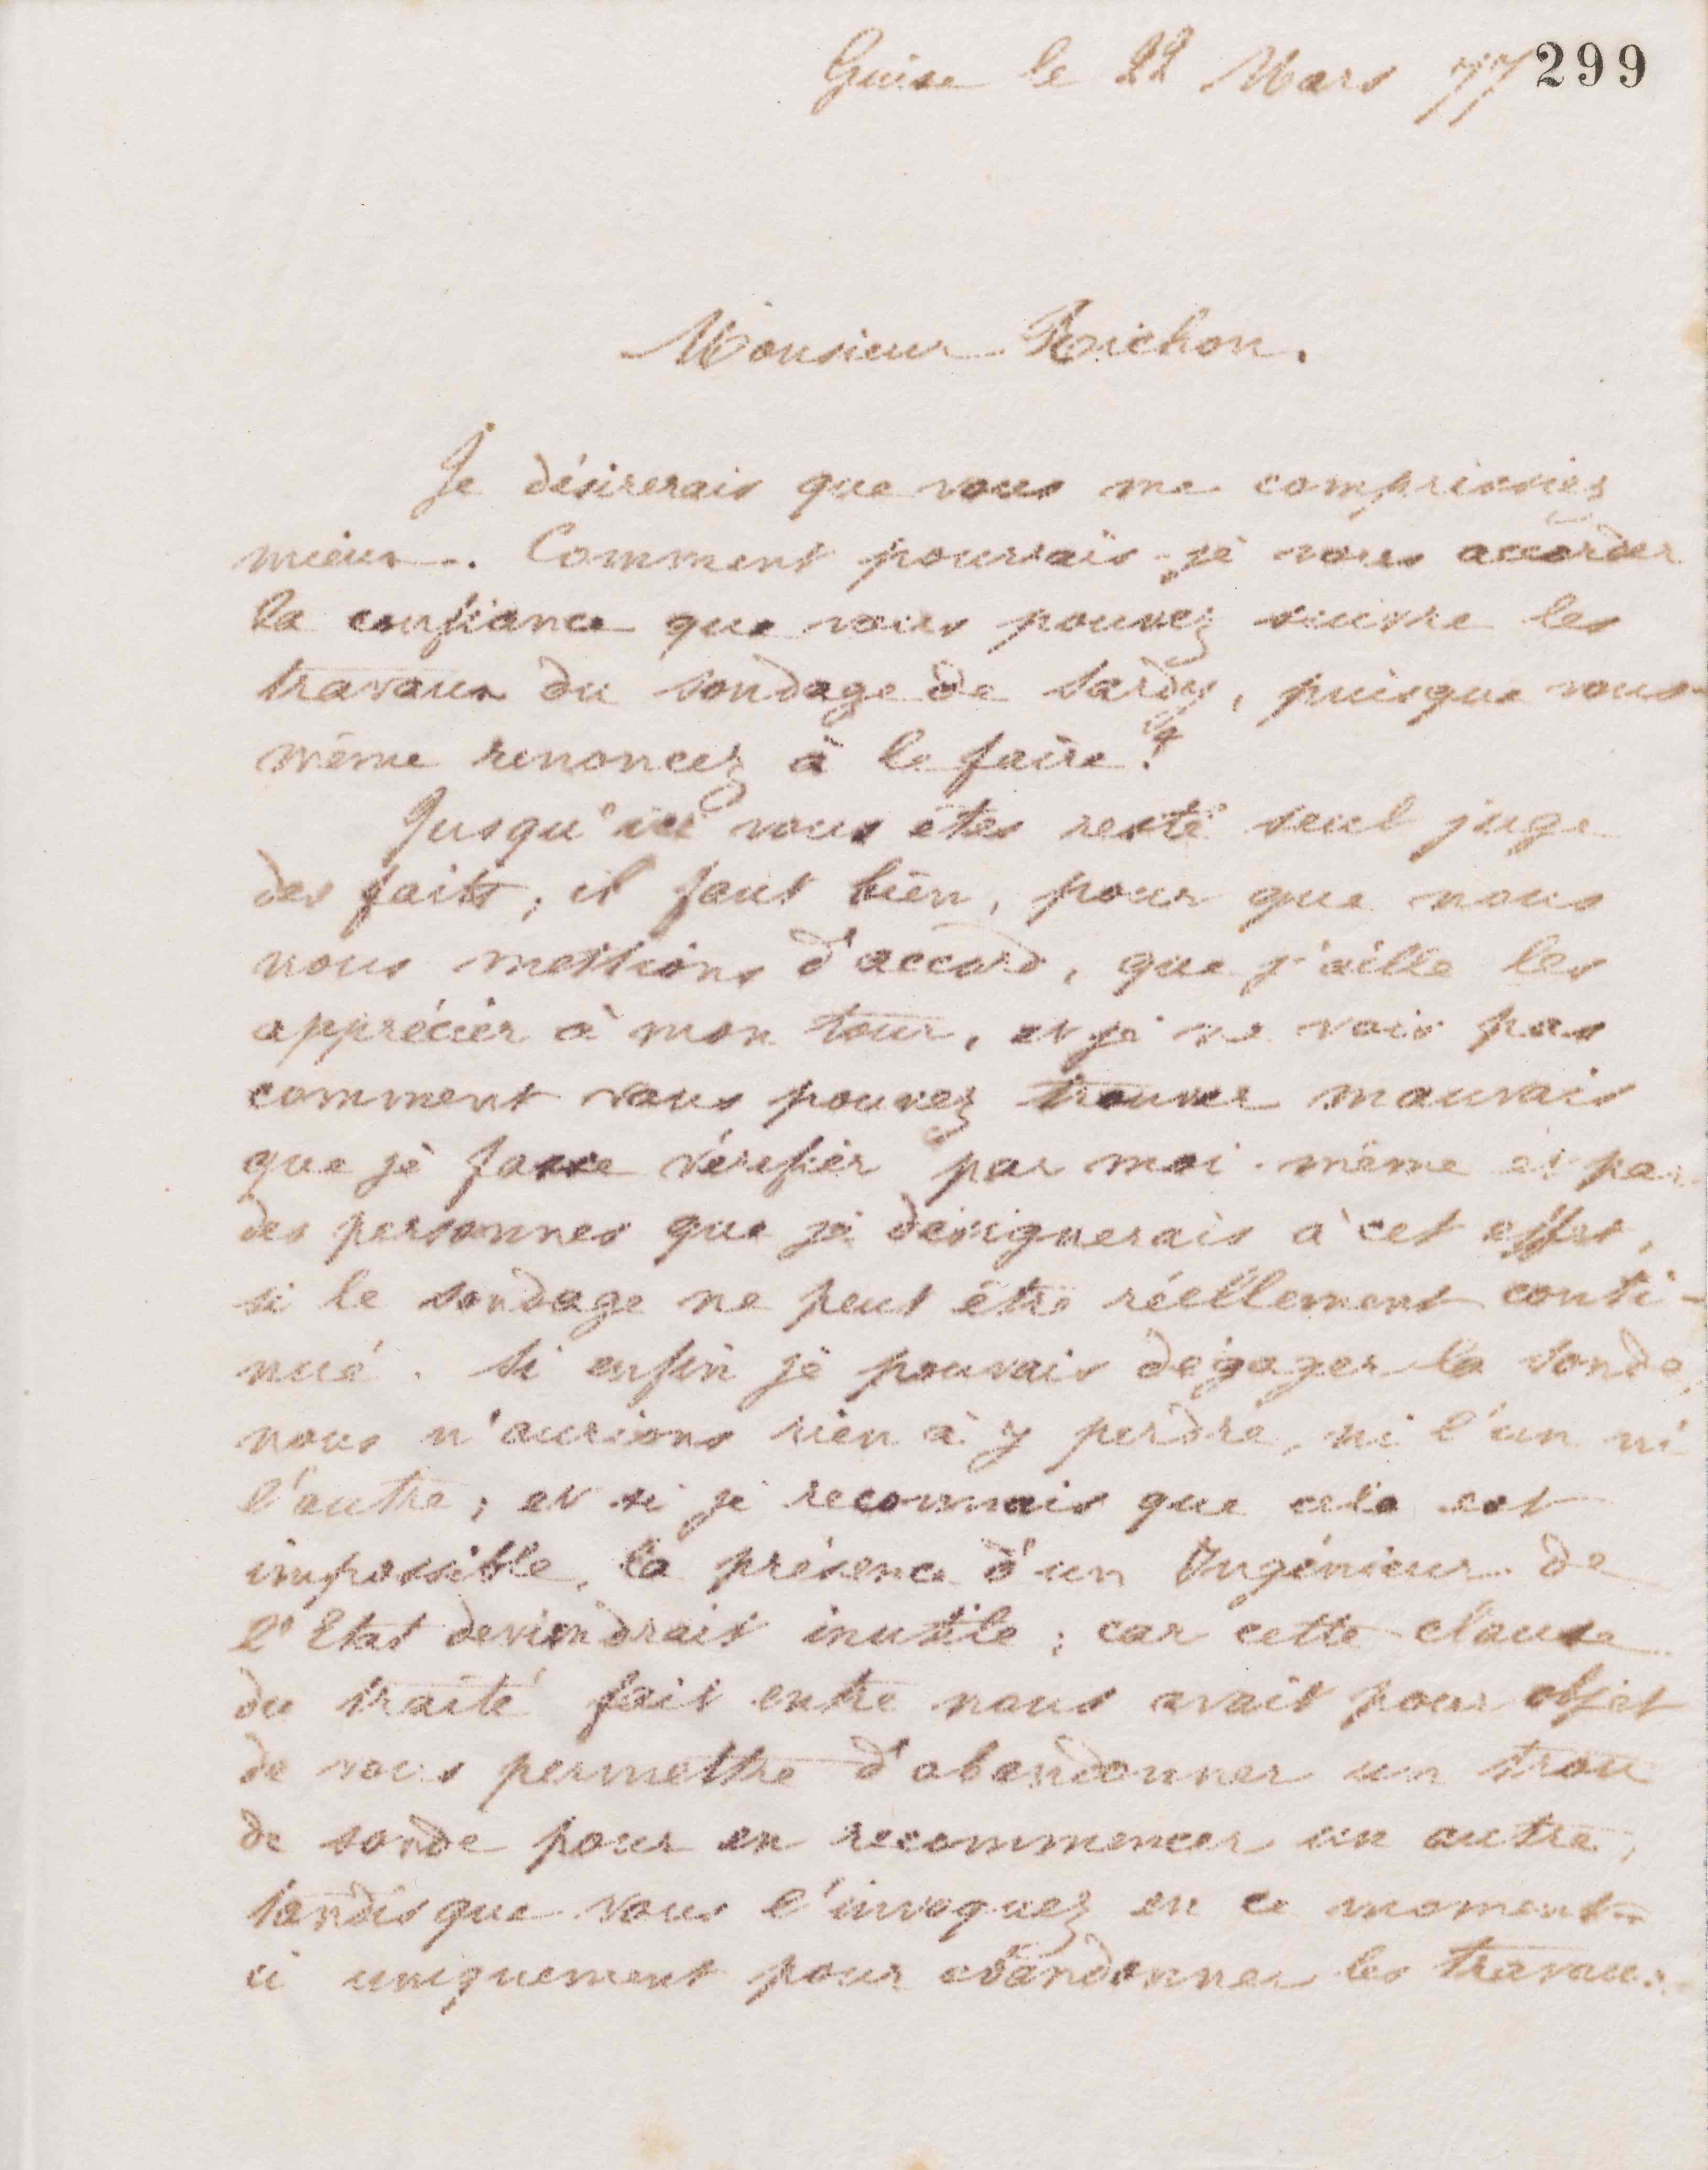 Guise le 22 Mars 77 299
Monsieur Richon.
Je désirerais que vous me comprissiez
mieux. Comment pourrais-je vous accorder
la confiance que vous pouvez suivre les
travaux du sondage de Sardy, puisque vous-
même renoncez à le faire ?
Jusqu'ici vous êtes resté seul juge
des faits ; il faut bien, pour que nous
nous mettions d'accord, que j'aille les
apprécier à mon tour, et je ne vois pas
comment vous pouvez trouver mauvais
que je fasse vérifier par moi-même et par
des personnes que je désignerais à cet effet,
si le sondage ne peut être réellement conti-
nué. Si enfin je pouvais dégager la sonde,
nous n'aurions rien à y perdre, ni l'un ni
l'autre ; et si je reconnais que cela est
impossible, la présence d'un Ingénieur de
l'Etat deviendrait inutile ; car cette clause
du traité fait entre nous avait pour objet
de vous permettre d'abandonner un trou
de sonde pour en recommencer un autre,
tandis que vous l'invoquez en ce moment-
ci uniquement pour abandonner les travaux.